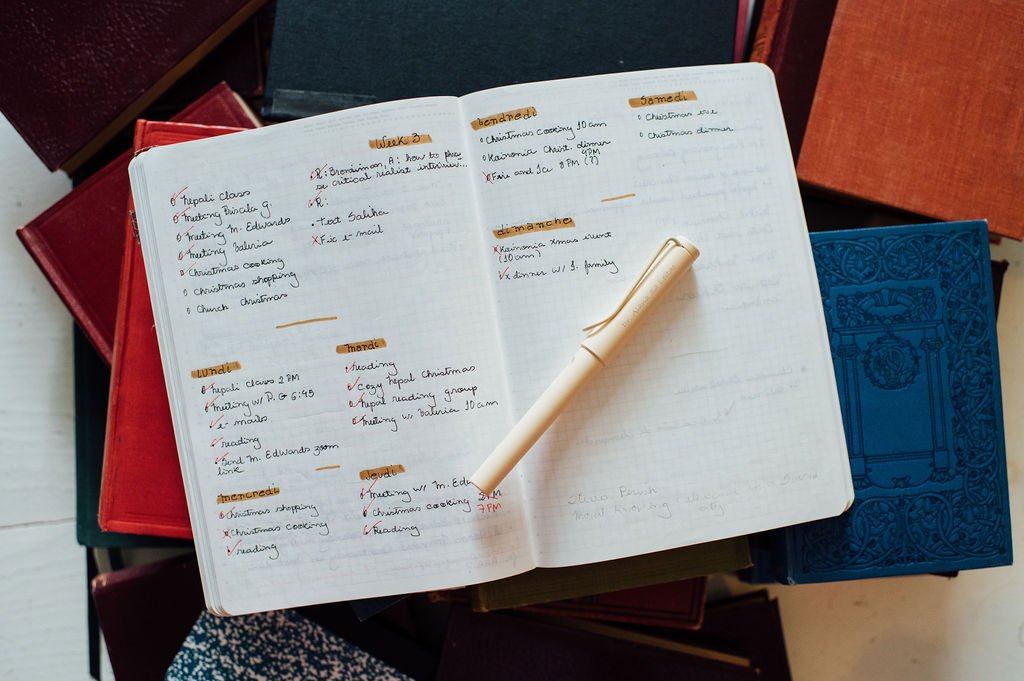 Week 3
Nepali Class
Meeting Priscila G.
Meeting M. Edwards
Meeting Valeria
Christmas cooking
Christmas shopping
Church Christmas
R: A: how to
se critical realist interview...
R:
Text Saliha
Fix e-mail
Lundi
Nepali Class 2 PM
Meeting w/ P. G 6:45
e-mails
reading
Send M. Edwards zoom
link
Mardi
reading
Cozy Nepal Christmas
Nepal reading group
Meeting w/ Valeria 10 am
Mercredi
Christmas shopping
Christmas cooking
reading
Jeudi
Meeting w/ M. Edw
2 PM
Christmas cooking
7 PM
Reading
Vendredi
Christmas cooking 10 am
Koinonia Christ. dinner
4 PM
Fire and Ice 8 PM (?)
Samedi
Christmas eve
Christmas dinner
dimanche
Koinonia xmas event
(10 am)
dinner w/ J. family